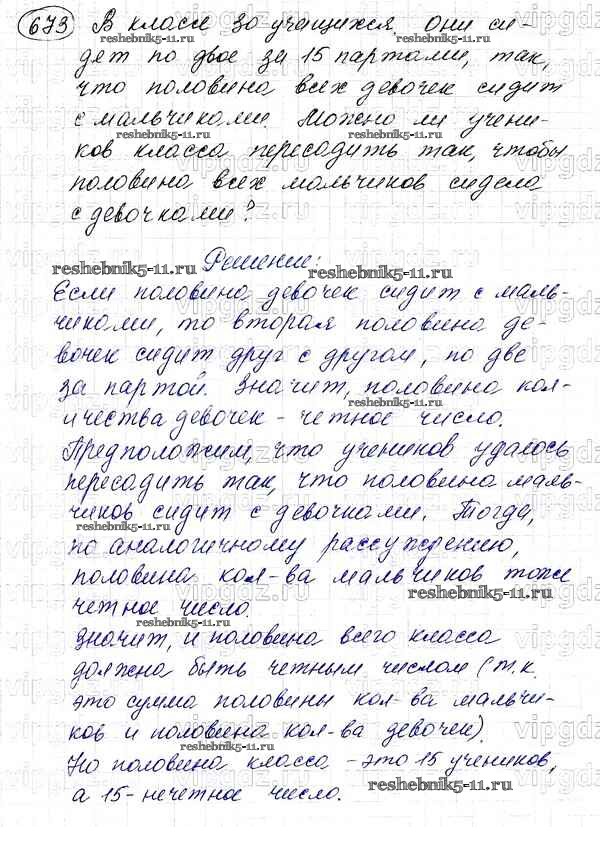 673 В классе 30 учащихся. Они си-
reshebnik5-11.ru
дят по двое за 15 партами, так,
что половина всех девочек сидит
с мальчиками. Можно ли учени-
reshebnik5-11.ru
ков класса пересадить так, чтобы
половина всех мальчиков сидела
с девочками?
Решение:
reshebnik5-11.ru
Если половина девочек сидит с маль-
чиками, то вторая половина де-
вочек сидит друг с другом, по две
за партой. Значит, половина кол-
reshebnik5-11.ru
ичества девочек - четное число.
Предположим, что учеников удалось
пересадить так, что половина маль-
чиков сидит с девочками. Тогда,
reshebnik5-11.ru
по аналогичному рассуждению,
половина кол-ва мальчиков тоже
reshebnik5-11.ru
четное число.
Значит, и половина всего класса
должна быть четным числом (т.к.
это сумма половины кол-ва мальчи-
ков и половина кол-ва девочек).
reshebnik5-11.ru
Но половина класса - это 15 учеников,
reshebnik5-11.ru
а 15 - нечетное число.